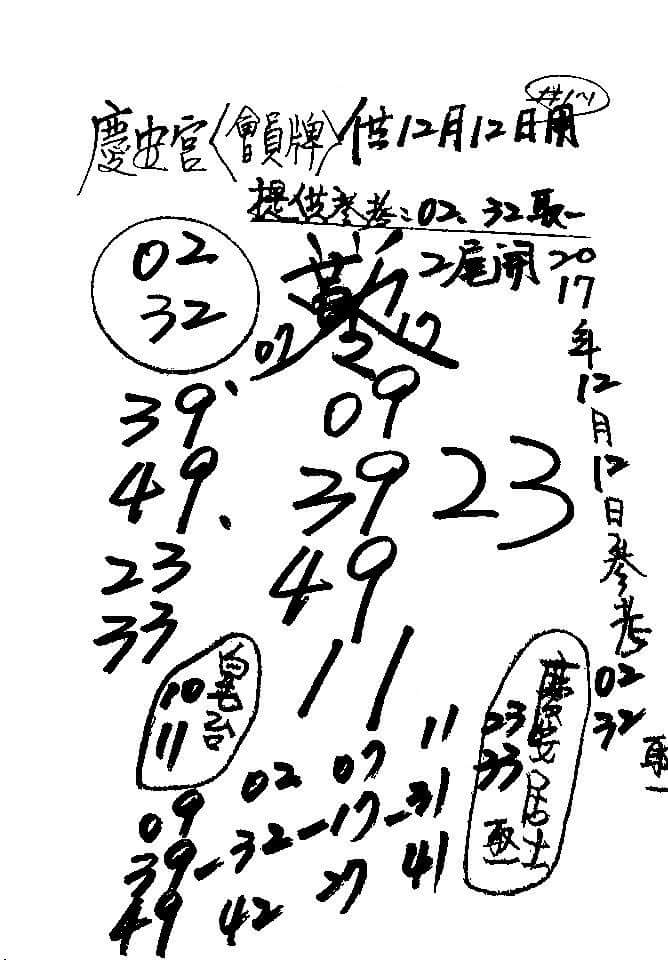 慶安宮〈會員牌〉供12月12日用
提供參考:02、32取一
2尾開
2017年12月12日參考
02
32
取一
02
32
07 2 17
39、
49、
23
33
09
39
49
11
23
10
11
慶安居士
23
33
取一
09 02 07 11
39-32-17-31
49 42 27 41